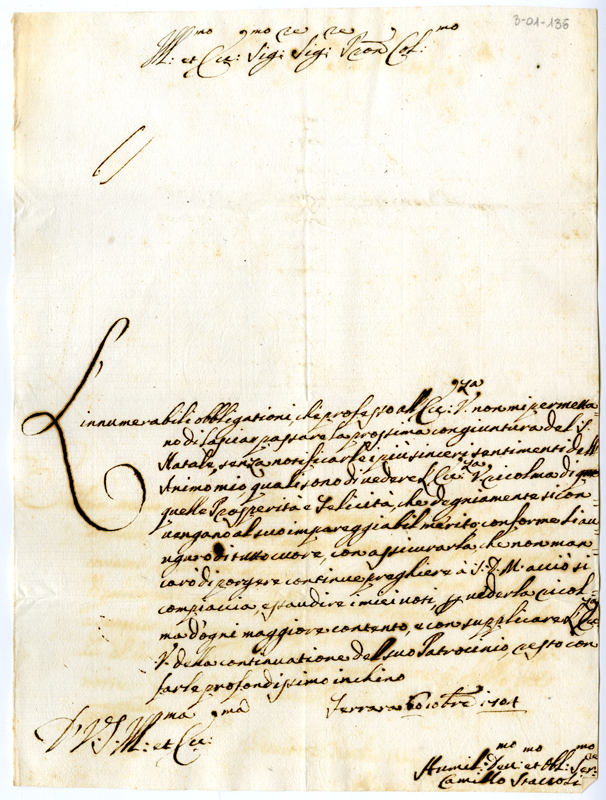 3-01-136
Ill:mo et Ecc:mo Sig:re Sig:re Pron Col:mo
L'innumerabili obbligationi, che professo all'Ecc:za V. non mi permetta
no di lasciar passare la prossima congiuntura del S.
Natale, senza notificarle i più sinceri sentimenti dell'
Animo mio quali sono di vedere l'Ecc:za V. ricolma di que
quelle Prosperità e Felicità, che degniamente si con
vengano al suo impareggiabil merito conforme li au
uguro di tutto cuore, con assicurarla, che non man
carò di porgere continue preghiere à S. D. M. acciò si
compiaccia esaudire i miei voti, per vederla ricol
ma d'ogni maggiore contento, e con supplicare l'Ecc:za
V. della continuatione del suo Patrocinio, resto con
farle profondissimo inchino
Ferrara 10bre 1704
D' V. S. Ill:ma et Ecc:ma
Humil:mo Deu:mo et Obl:mo Ser:re
Camillo